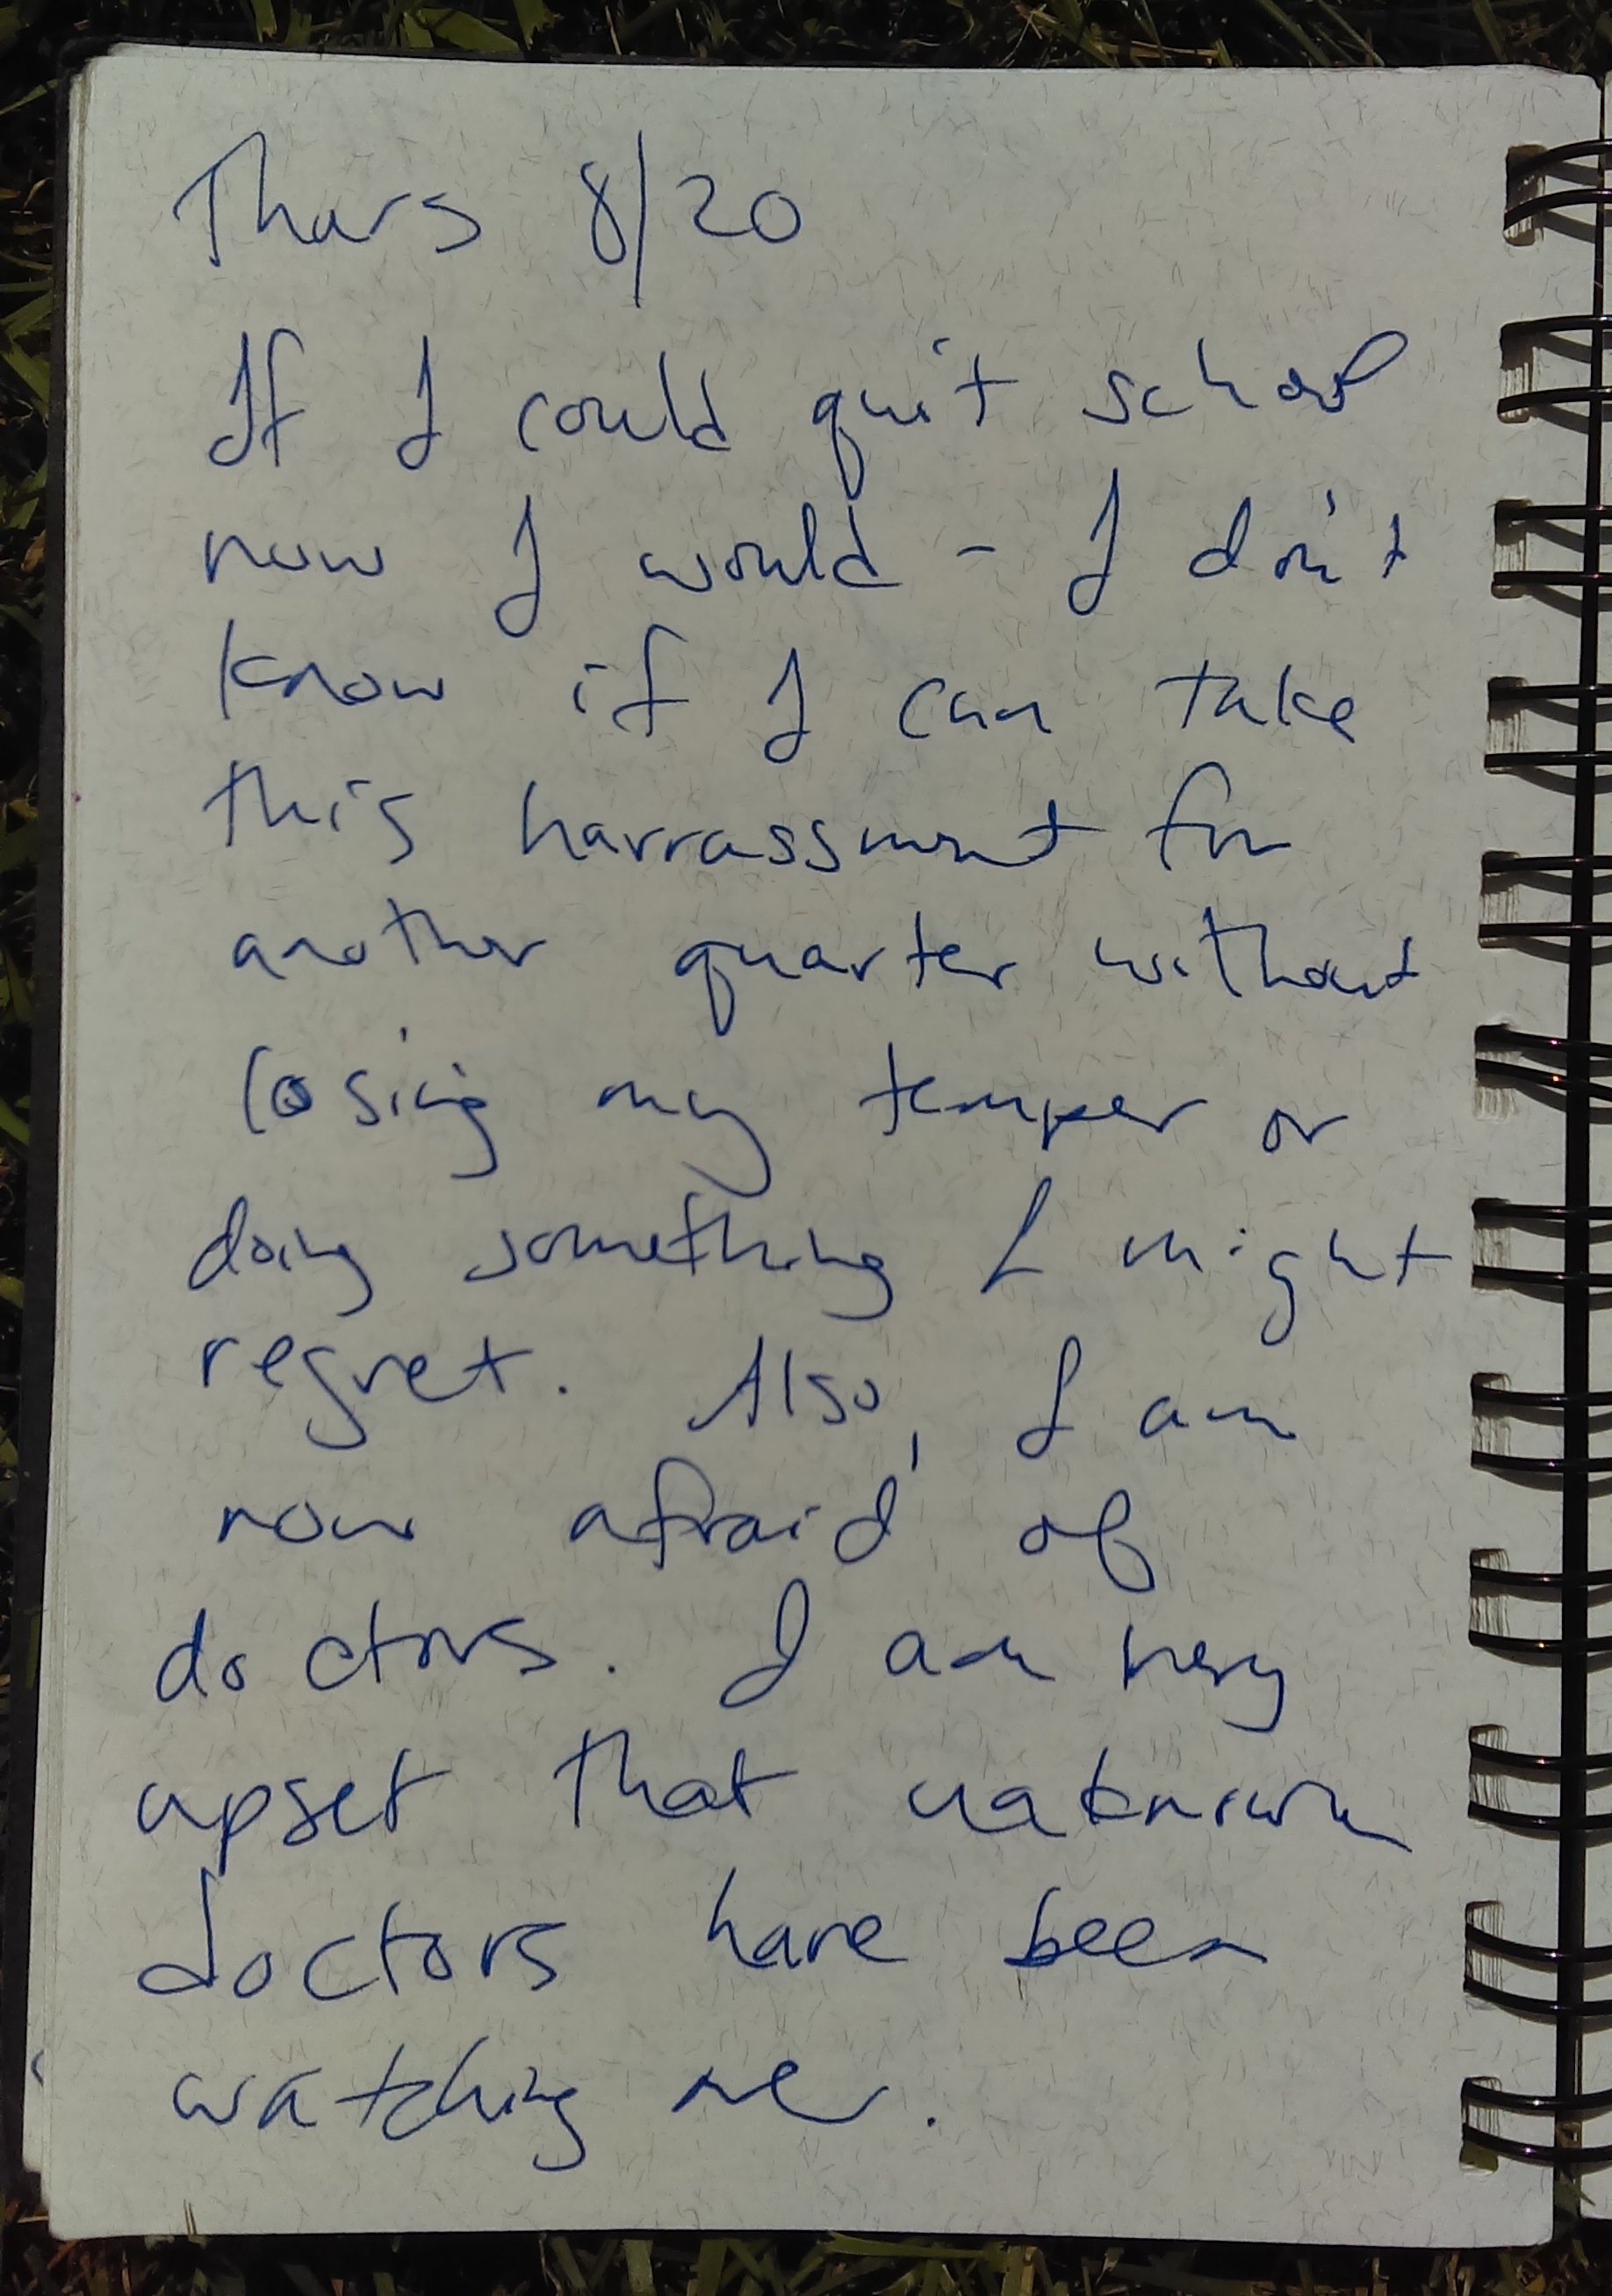 Thurs 8/20
If I could quit school
now I would - I don't
know if I can take
this harrassment for
another quarter without
losing my temper or
doing something I might
regret. Also, I am
now afraid of
doctors. I am very
upset that unknown
doctors have been
watching me.